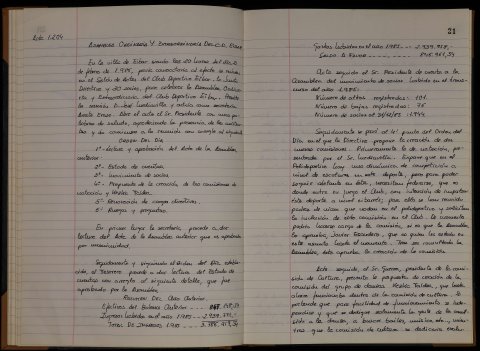 Acta 1.204
ASAMBLEA ORDINARIA Y EXTRAORDINARIA DEL C.D. EIBAR
En la villa de Eibar siendo las 20 horas del día
de febrero de 1.985, previa convocatoria al efecto se reúnen
en el Salón de Actos del Club Deportivo Eibar, la Junta
Directiva y 20 socios, para celebrar la Asamblea Ordina-
ria y Extraordinaria del Club Deportivo Eibar. Preside
la reunión y actúa como secretario
Abre el acto el Sr. Presidente con unas pa-
labras de saludo, agradeciendo la presencia de los asisten-
tes y da comienzo a la reunión con arreglo al siguiente
ORDEN DEL DIA
1º- Lectura y aprobación del Acta de la Asamblea
anterior.
2º- Estado de cuentas
3º- Movimiento de socios
4º- Propuesta de la creación de las comisiones de
natación y Kezka Taldea.
5º- Renovación de cargos directivos.
6º- Ruegos y preguntas.
En primer lugar la secretaria, procede a dar
lectura del Acta de la Asamblea anterior que es aprobada
por unanimidad.
Seguidamente y siguiendo el Orden del Día estable-
cido, el Tesorero procede a dar lectura del Estado de
cuentas con arreglo al siguiente detalle, que fue
aprobado por la Asamblea.
RESUMEN DEL AÑO ANTERIOR
Efectivos del Balance Anterior
Ingresos habidos en el año 1985
TOTAL DE INGRESOS 1.985
21
Gastos habidos en el año 1985
Saldo a favor
Acto seguido el Sr. Presidente da cuenta a la
Asamblea del movimiento de socios habido en el trans-
curso del año 1985:
Número de altas registradas: 101
Número de bajas registradas: 95
Número de socios al 31/12/85
Seguidamente se pasó al 4º punto del Orden del
Día, en el que la Directiva propone la creación de dos
nuevas comisiones. Primeramente la de natación, pre-
sentada por el Sr. Expone que en el
Polideportivo hay una dinámica de competición a
nivel de escolares en este deporte, pero para poder
seguir adelante en éste, necesitan federarse, que es
donde entra en juego el Club, con intención de impulsar
éste deporte a nivel estatal; para ello se han reunido
padres de niños que nadan en el polideportivo y solicitan
la inclusión de ésta comisión en el Club. De momento
podría hacerse cargo de la comisión, si es que la Asamblea
lo aprueba, Javier que es quien ha estado en
este asunto hasta el momento. Tras ser consultada la
Asamblea, ésta aprueba la creación de la comisión.
Acto seguido, el Sr. presidente de la comisi-
ón de Cultura, presenta la propuesta de creación de la
comisión del grupo de danzas Kezka Taldea, que hasta
ahora funcionaba dentro de la comisión de cultura. Se
pretende que, para facilidad de funcionamiento se inde-
pendice y que se dedique solamente la gente de la comi-
sión a la danza, a buscar bailes, músicas etc., mien-
tras que la comisión de cultura se dedicaría exclu-